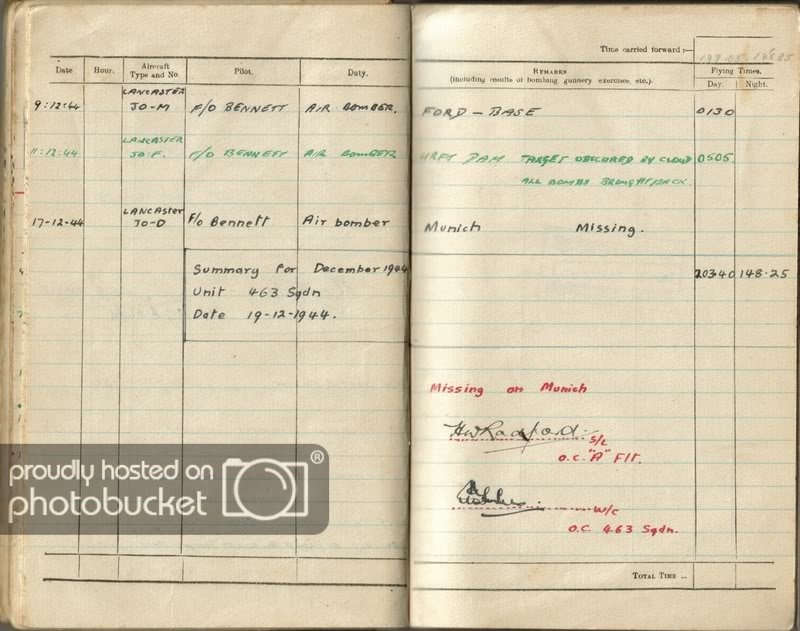 Time carried forward :—
Date Hour. Aircraft Type and No. Pilot. Duty. Remarks (including results of bombing gunnery exercises, etc.). Flying Times. Day. Night.
9:12:44 LANCASTER JO-M F/O BENNETT AIR BOMBER. FORD – BASE 0130
11:12:44 LANCASTER JO-F. F/O BENNETT AIR BOMBER DAM TARGET OBSCURED BY CLOUD 0505.
ALL BOMBS BROUGHT BACK.
17-12-44 LANCASTER JO-D F/o Bennett Air bomber Munich Missing.
Summary for December 1944 20340 148.25
Unit 463 Sqdn
Date 19-12-1944.
Missing on Munich
HW Radford. S/L
O.C. "A" Flt.
W/C
O.C. 463 Sqdn.
Total Time ..
proudly hosted on
photobucket